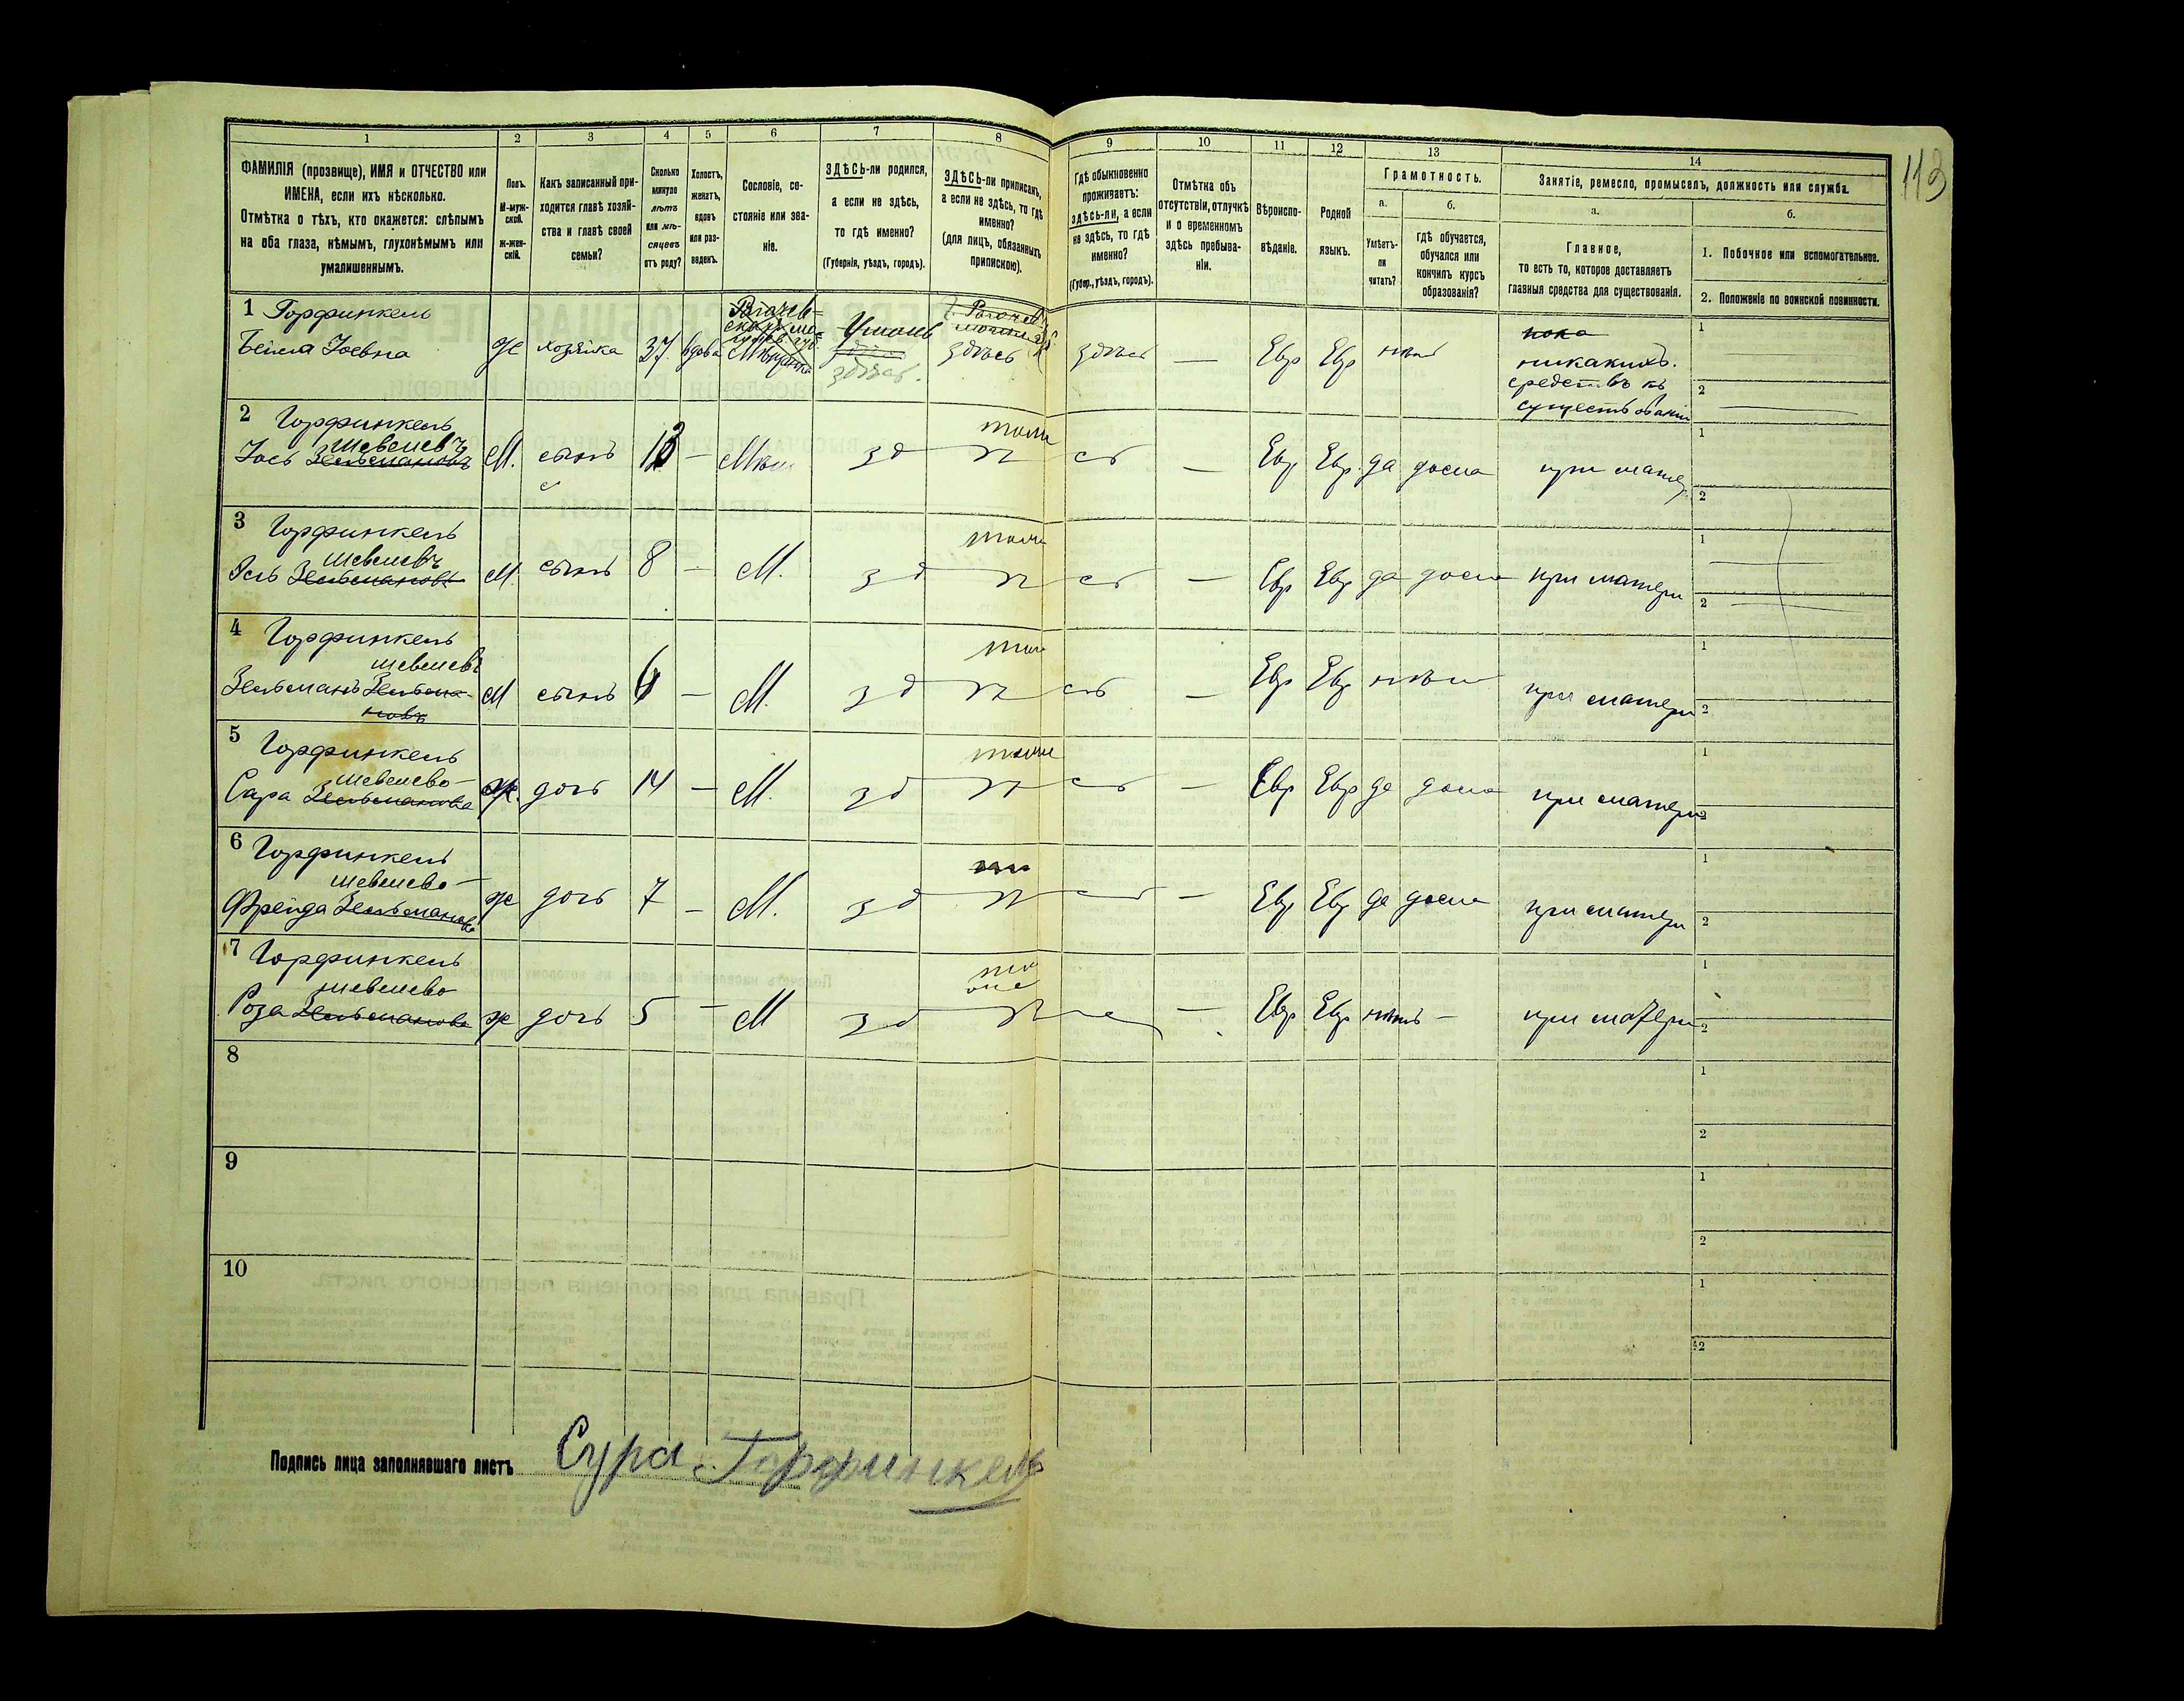 113
1 2 3 4 5 6 7 8 9 10 11 12 13 14
ФАМИЛІЯ (прозвище), ИМЯ и ОТЧЕСТВО или
ИМЕНА, если ихъ нѣсколько.
Отмѣтка о тѣхъ, кто окажется: слѣпымъ
на оба глаза, нѣмымъ, глухонѣмымъ или
умалишеннымъ.
Полъ.
М-муж-
ской.
ж-жен-
скій.
Какъ записанный при-
ходится главѣ хозяй-
ства и главѣ своей
семьи?
Сколько
минуло
лѣтъ
или мѣ-
сяцевъ
отъ роду?
Холостъ,
женатъ,
вдовъ
или раз-
веденъ.
Сословіе, со-
стояніе или зва-
ніе.
ЗДѢСЬ-ли родился,
а если не здѣсь,
то гдѣ именно?
(Губернія, уѣздъ, городъ).
ЗДѢСЬ-ли приписанъ,
а если не здѣсь, то гдѣ
именно?
(для лицъ, обязанныхъ
припискою).
Гдѣ обыкновенно
проживаетъ:
здѣсь-ли, а если
не здѣсь, то гдѣ
именно?
(Губер., уѣздъ, городъ).
Отмѣтка объ
отсутствіи, отлучкѣ
и о временномъ
здѣсь пребыва-
ніи.
Вѣроиспо-
вѣданіе.
Родной
языкъ.
Грамотность.
а.
Умѣетъ-
ли
читать?
б.
гдѣ обучается,
обучался или
кончилъ курсъ
образованія?
Занятіе, ремесло, промыселъ, должность или служба.
а.
Главное,
то есть то, которое доставляетъ
главныя средства для существованія.
б.
1. Побочное или вспомогательное.
2. Положеніе по воинской повинности.
1 Горфинкель
Бейла Іосевна ж хозяйка 37 вдова Мѣщанка Умань здѣсь здѣсь здѣсь — Евр Евр нѣтъ
пока
никакихъ
средствъ къ
существованію
2 Горфинкель
Шевелевъ
Іось Зельмановъ М. сынъ 13 — Мѣщ зд ѣ сь — Евр Евр да дома при матери
3 Горфинкель
Шевелевъ
Зельмановъ М. сынъ 8 — М. зд ѣ сь — Евр Евр да дома при матери
4 Горфинкель
Шевелевъ
Зельманъ Зельма-
новъ М сынъ 6 — М. зд ѣ сь — Евр Евр нѣтъ при матери
5 Горфинкель
Шевелево-
Сара Зельманова ж. дочь 14 — М. зд ѣ сь — Евр Евр да дома при матери
6 Горфинкель
Шевелево-
Фрейда Зельманова ж дочь 7 — М. зд ѣ сь — Евр Евр да дома при матери
7 Горфинкель
Шевелево
Роза Зельманова ж дочь 5 — М зд ѣ сь — Евр Евр нѣтъ — при матери
8
9
10
Подпись лица заполнявшаго листъ Сура Горфинкель